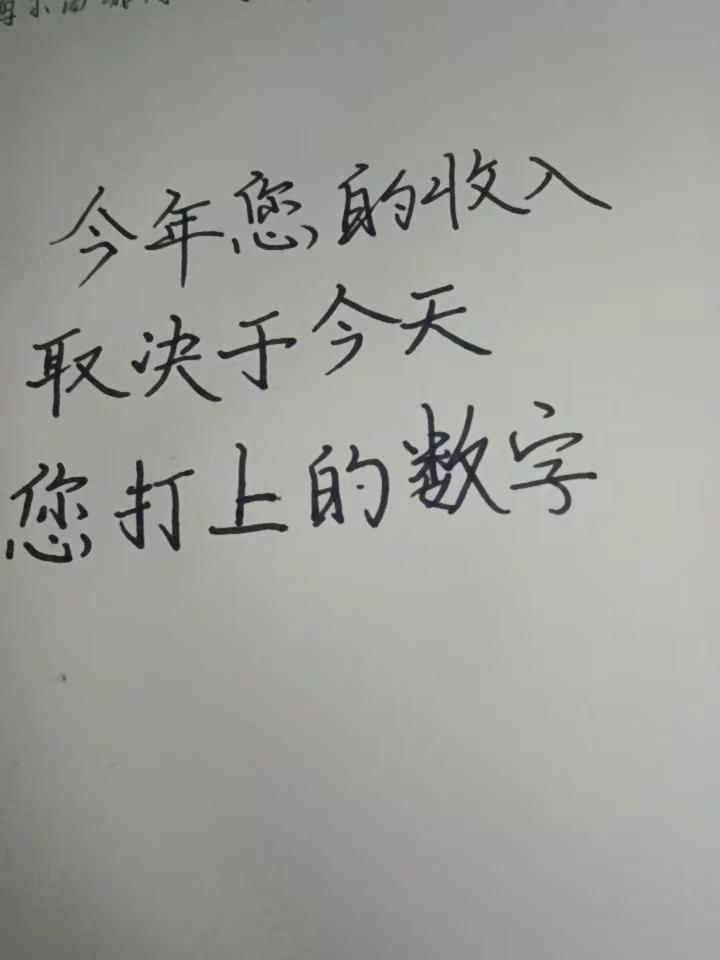 今年您的收入
取决于今天
您打上的数字